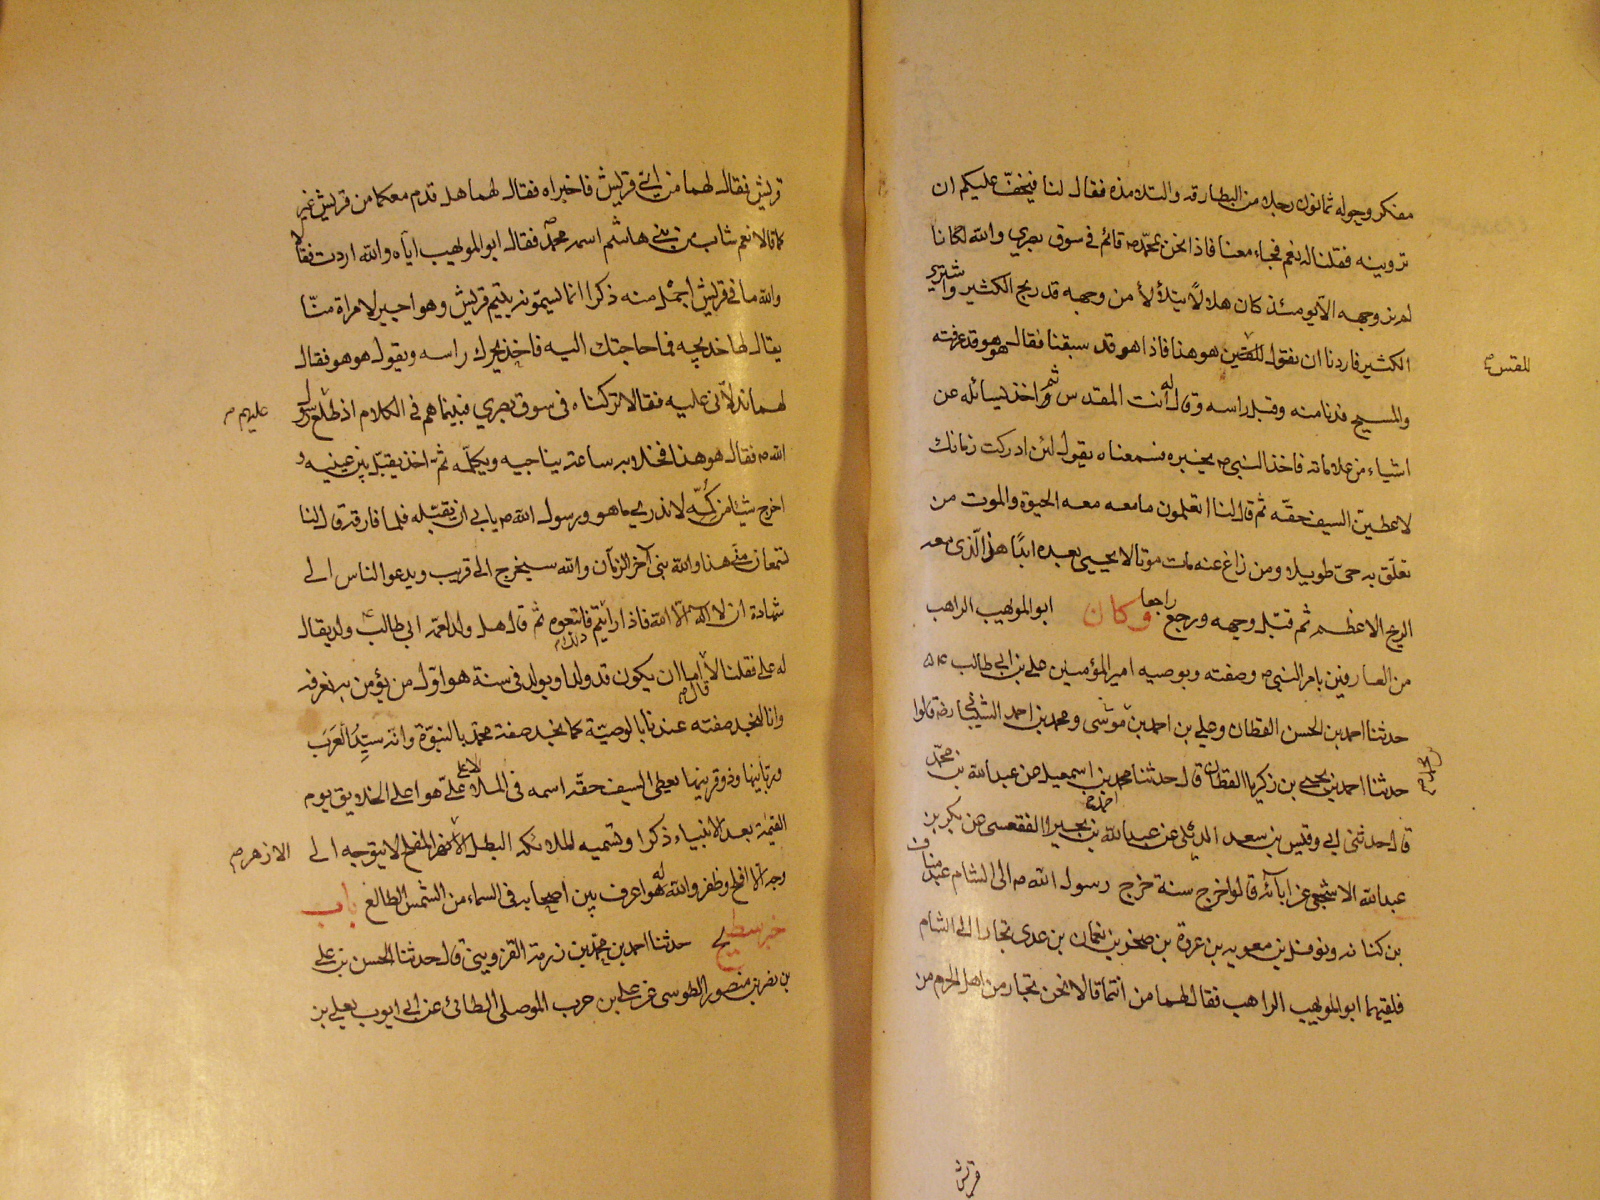 مفكر وحوله ثمانون رجلا من البطارقه والتلامذه فقال لنا فيخفّ عليكم ان
تروينه فقلنا له نعم فجاء معنا فاذا نحن بمحمّد ص قائم فى سوق بصري والله لكانا
لم نر وجهه الا يومئذ كان هلالًا يتلألأ من وجهه قد ربح الكثير واشترى
الكثير فاردنا ان نقول للقس هو هذا فاذا هو قد سبقنا فقال هو هو قد عرفته
للقس
والمسيح فدنا منه وقبل راسه وقال له أنت المقدس ثم واخذ يسائله عن
اشياء من علاماته فاخذ النبي ص يخبره فسمعناه يقول لئن ادركت زمانك
لاعطين السيف حقّه ثم قال لنا اتعلمون ما معه معه الحيوة والموت من
تعلّق به حيى طويلا ومن زاغ عنه مات موتا لا يحيى بعده ابدًا هو الّذى معه
الربح الاعظم ثم قبّل وجهه ورجع راجعا وكان ابو المويهيب الراهب
من العارفين بامر النبي ص وصفته وبوصيه امير المؤمنين علي بن ابي طالب ع
حدثنا احمد بن الحسن القطان وعلي بن احمد بن موسى ومحمد بن احمد الشيباني رض قالوا
حدثنا احمد بن يحيى بن زكريا القطان قال حدثنا محمد بن اسمعيل عن عبد الله بن محمّد
قال حدثنى ابي وقيس بن سعد الدئلى عن عبد الله بن بحيرا الفقعسى عن بكر بن
عبد الله الاشجعي عن ابآئه قالوا خرج سنة خرج رسول الله ص الى الشام عبد مناف
بن كنانه ونوفل بن معويه بن عروة بن صخر بن نعمان بن عدى تجارا الى الشام
فلقيهما ابو المويهيب الراهب فقال لهما من انتما قالا نحن تجار من اهل الحرم من
قريش
قريش فقال لهما من اىّ قريش فاخبراه فقال لهما هل قدم معكما من قريش غيركما
قالا نعم شاب من بنى هاشم اسمه محمّد ص فقال ابو المويهيب ايّاه والله اردت فقالا
والله ما فى قريش اخمل منه ذكرا انما يسمّونه بيتيم قريش وهو اجير لامراة منّا
يقال لها خديجه فما حاجتك اليه فاخذ يحرك راسه ويقول هو هو فقال
لهما تدلّانى عليه فقالا تركناه فى سوق بصري فبينما هم فى الكلام اذ طلع عليهم رسول
عليهم ص
الله ص فقال هو هذا فخلا به ساعة يناجيه ويكلّمه ثم اخذ يقبّل بين عينيه و
اخرج شيئا من كُمّه لا ندرى ما هو ورسول الله ص يابى ان يقبله فلما فارقه قال لنا
تسمعان منّى هذا والله نبى آخر الزمان والله سيخرج الى قريب ويدعو الناس الى
شهادة ان لا اله الّا الله فاذا رأيتم ذلك فاتبعوه ثم قال هل ولد لعمّه ابى طالب ولد يقال
له على فقلنا لا قال اما ان يكون قد ولد او يولد فى سنة هو اوّل من يؤمن به نعرفه
وانا لنجد صفته عندنا بالوصيّة كما نجد صفة محمّد بالنبوّة وانّه سيّدُ العَرَبَ
وربّانيها وذو قرنيها يعطى السيف حقّه اسمه فى الملا الاعلى علىّ هو اعلى الخلايق يوم
القيمة بعد الانبياء ذكرا وتسميه الملائكة البطل الازهر المفلح لا يتوجه الى
الازهر ص
وجه الا افلح وظفر والله لهو اعرف بين اصحابه فى السماء من الشمس الطالع باب
خبر سطيح حدثنا احمد بن محمّد بن رزمة القزوينى قال حدثنا الحسن بن على
بن نصر بن منصور الطوسى عن على بن حرب الموصلى الطائى عن ابى ايوب يعلى بن